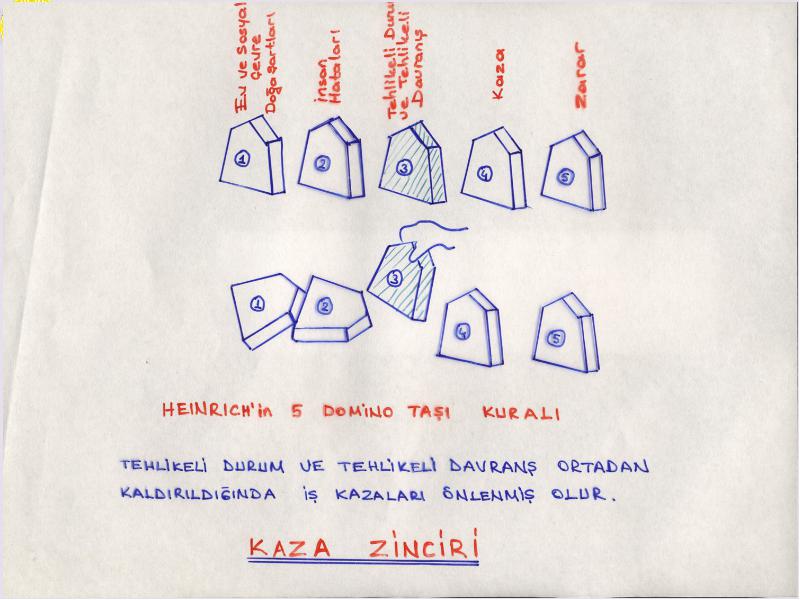 Ev ve Sosyal
Çevre
Doğa Şartları
insan
Hataları
Tehlikeli
ve Tehlikeli
Davranş
Kaza
Zarar
1
2
3
4
5
1
2
3
4
5
HEINRICH'in 5 DOMİNO TAŞI KURALI
TEHLİKELİ DURUM VE TEHLİKELİ DAVRANŞ ORTADAN
KALDIRILDIĞINDA İŞ KAZALARI ÖNLENMİŞ OLUR.
KAZA ZİNCİRİ